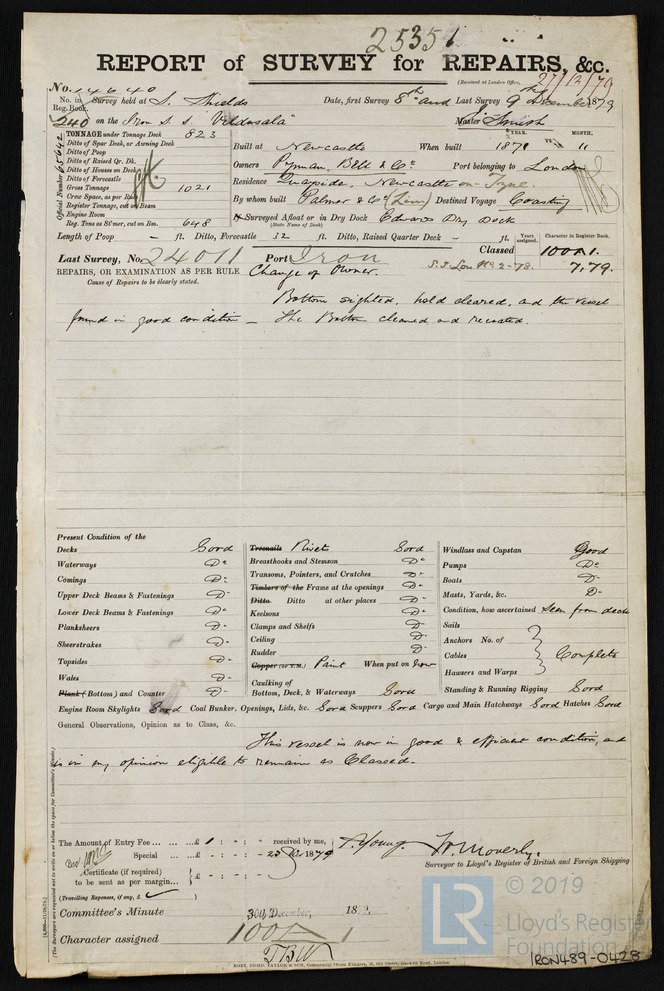 25351
REPORT of SURVEY for REPAIRS, &c.
(Received at London Office, 27/12/79
No. 14640
No. in Reg. Book. Survey held at S. Shields Date, first Survey 8th and Last Survey 9th December 1879
240 on the Iron S. S. "Veddasala" Master Smith
Official Number 65642
TONNAGE under Tonnage Deck 823
Ditto of Spar Deck, or Awning Deck
Ditto of Poop
Ditto of Raised Qr. Dk.
Ditto of Houses on Deck
Ditto of Forecastle
Gross Tonnage 1021
Crew Space, as per Rule
Register Tonnage, cut on Beam
Engine Room
Reg. Tons as St'mer, cut on Bm. 648
YEAR. MONTH
Built at Newcastle When built 1871 11
Owners Pyman, Bell & Co Port belonging to London
Residence Quayside, Newcastle on Tyne.
By whom built Palmer & Co (Lim) Destined Voyage Coasting
Surveyed Afloat or in Dry Dock Edwards Dry Dock
(State Name of Dock)
Length of Poop – ft. Ditto, Forecastle 32 ft. Ditto, Raised Quarter Deck – ft.
Years assigned. Character in Register Book.
Last Survey, No. 24011 Port Iron Classed 100A1.
S.S. Lon No. 2-78. 7,79.
REPAIRS, OR EXAMINATION AS PER RULE Change of Owner.
Cause of Repairs to be clearly stated.
Bottom sighted, hold cleared, and the vessel
found in good condition – The Bottom cleaned and recoated.
Present Condition of the
Decks Good
Waterways Do
Comings Do
Upper Deck Beams & Fastenings Do
Lower Deck Beams & Fastenings Do
Planksheers Do
Sheerstrakes Do
Topsides Do
Wales Do
Plank (Bottom) and Counter Do
Treenails Rivets Good
Breasthooks and Stemson Do
Transoms, Pointers, and Crutches Do
Timbers of the Frame at the openings Do
Ditto Ditto at other places Do
Keelsons Do
Clamps and Shelfs Do
Ceiling Do
Rudder Do
Copper (or Y.M.) Paint When put on Now
Caulking of
Bottom, Deck, & Waterways Good
Windlass and Capstan Good
Pumps Do
Boats Do
Masts, Yards, &c. Do
Condition, how ascertained Seen from deck
Sails
Anchors No. of
Cables Complete
Hawsers and Warps
Standing & Running Rigging Good
Engine Room Skylights Good Coal Bunker, Openings, Lids, &c. Good Scuppers Good Cargo and Main Hatchways Good Hatches Good
General Observations, Opinion as to Class, &c.
This vessel is now in good & efficient condition, and
is in my opinion eligible to remain as Classed.
(The Surveyors are requested not to write on or below the space for Committee's Minute.)
The Amount of Entry Fee ... ... ...£ 1 : - : - received by me,
Special ... ...£ : - : - 23 Dec 1879
Certificate (if required)
to be sent as per margin...
(Travelling Expenses, if any, £
A Young. W. Moverly.
Surveyor to Lloyd's Register of British and Foreign Shipping
Committee's Minute 30th December, 18
Character assigned 100A1
© 2019
LR
Lloyd's Register
Foundation
IRON489-0428